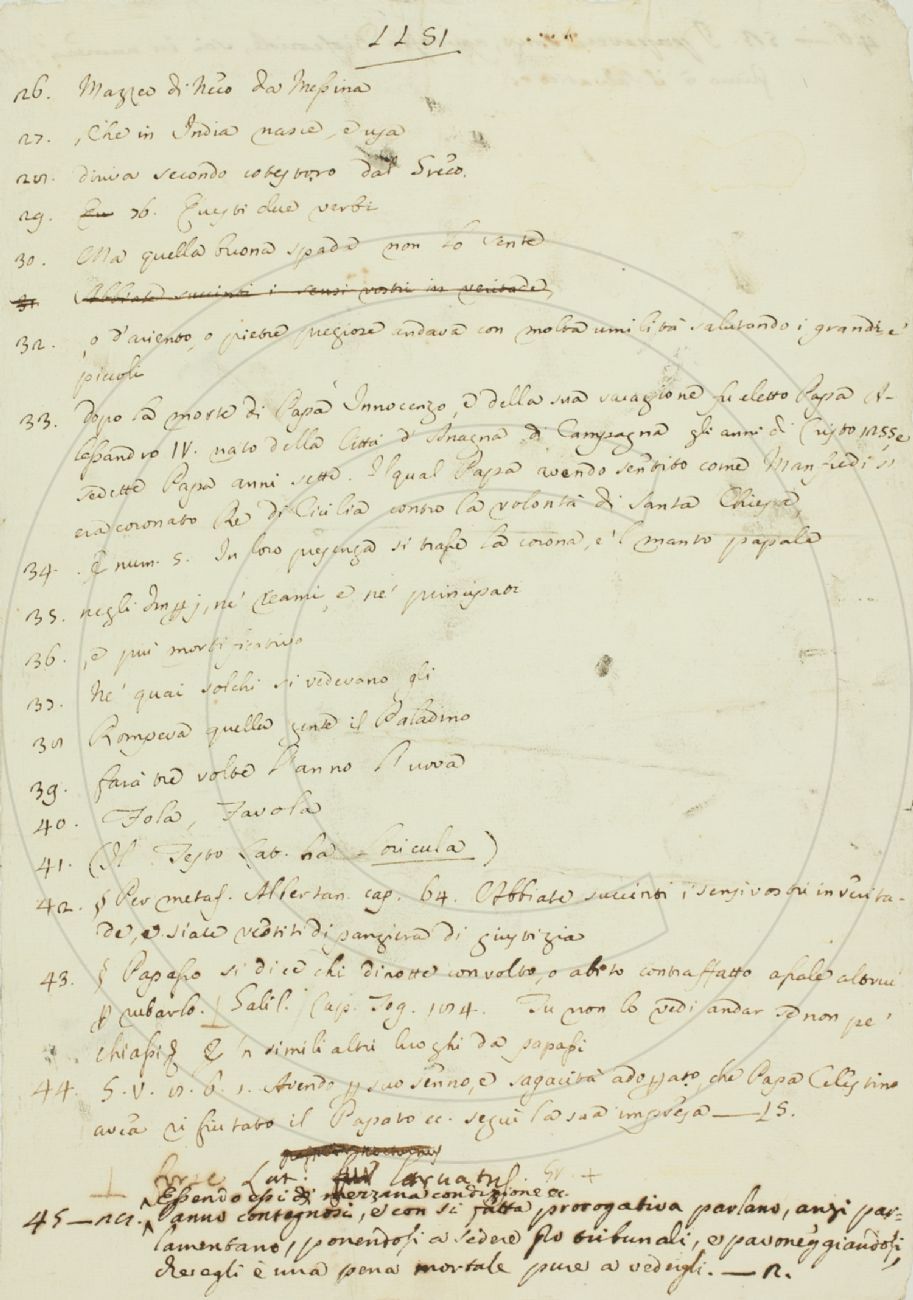 26. Mazzeo di Rico da Messina
27. , Che in India nasce, e usa
28. diviva secondo cotestoro dal Greco.
29. 76. Questi due versi
30. Ma quella buona spada non lo sente
31. Abbiate succinti i sensi vostri in veritade,
32. , o d'ariento, o pietre preziose andava con molta umilità salutando i grandi e'
piccoli
33. dopo la morte di Papa Innocenzo, e della sua vacazione fu eletto Papa A-
lessandro IV. nato della Città d'Anagna di Campagna gli anni di Cristo 1255 e
sedette Papa anni sette. Il qual Papa avendo sentito come Manfredi si
era coronato Re di Cicilia contro la volontà di Santa Chiesa,
34. E num. 5. In loro presenza si trasse la corona, e 'l manto papale
35. negli Imperj, ne' Reami, e ne' principati
36. , e più mortificativo
37. Ne' quai solchi si vedevano gli
38 Rompeva quella gente il Paladino
39. farà tre volte l'anno l'uova
40. Fola, Favola
41. (Il Testo Lat. ha Loricula)
42. § Per metaf. Albertan. cap. 64. Abbiate succinti i sensi vostri in verita-
de, e siate vestiti di panziera di giustizia
43. § Papasso si dice chi di notte con volto, o abito contraffatto assale altrui
p rubarlo. Salil. Cap. Tog. 184. Tu non lo vedi andar se non pe'
chiassi E 'n simili altri luoghi da papassi
44. G. V. 8. 6. 1. Avendo p suo senno, e sagacità adoprato, che Papa Celestino
avea rifiutato il Papato ec. seguì la sua impresa — LS.
Lat. larvatus. Gr. +
Essendo essi di mezzana condizione ec.
45 — vanno contegnosi, e con sì fatta prorogativa parlano, anzi par-
lamentano, ponendosi a sedere pro tribunali, e pavoneggiandosi,
che egli è una pena mortale pure a vedergli. — R.